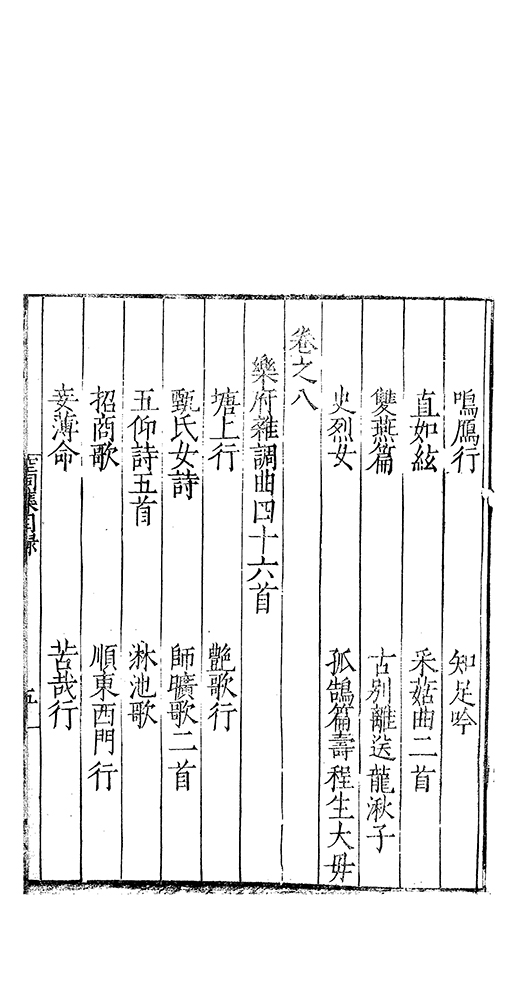 鳴鴈行 知足吟
直如絃 采菇曲二首
雙燕篇 古別離送龍湫子
史烈女 孤鵠篇壽程生大毋
卷之八
樂府雜調曲四十六首
塘上行 艷歌行
甄氏女詩 師曠歌二首
五仰詩五首 淋池歌
招商歌 順東西門行
妾薄命 苦哉行
集目録 五